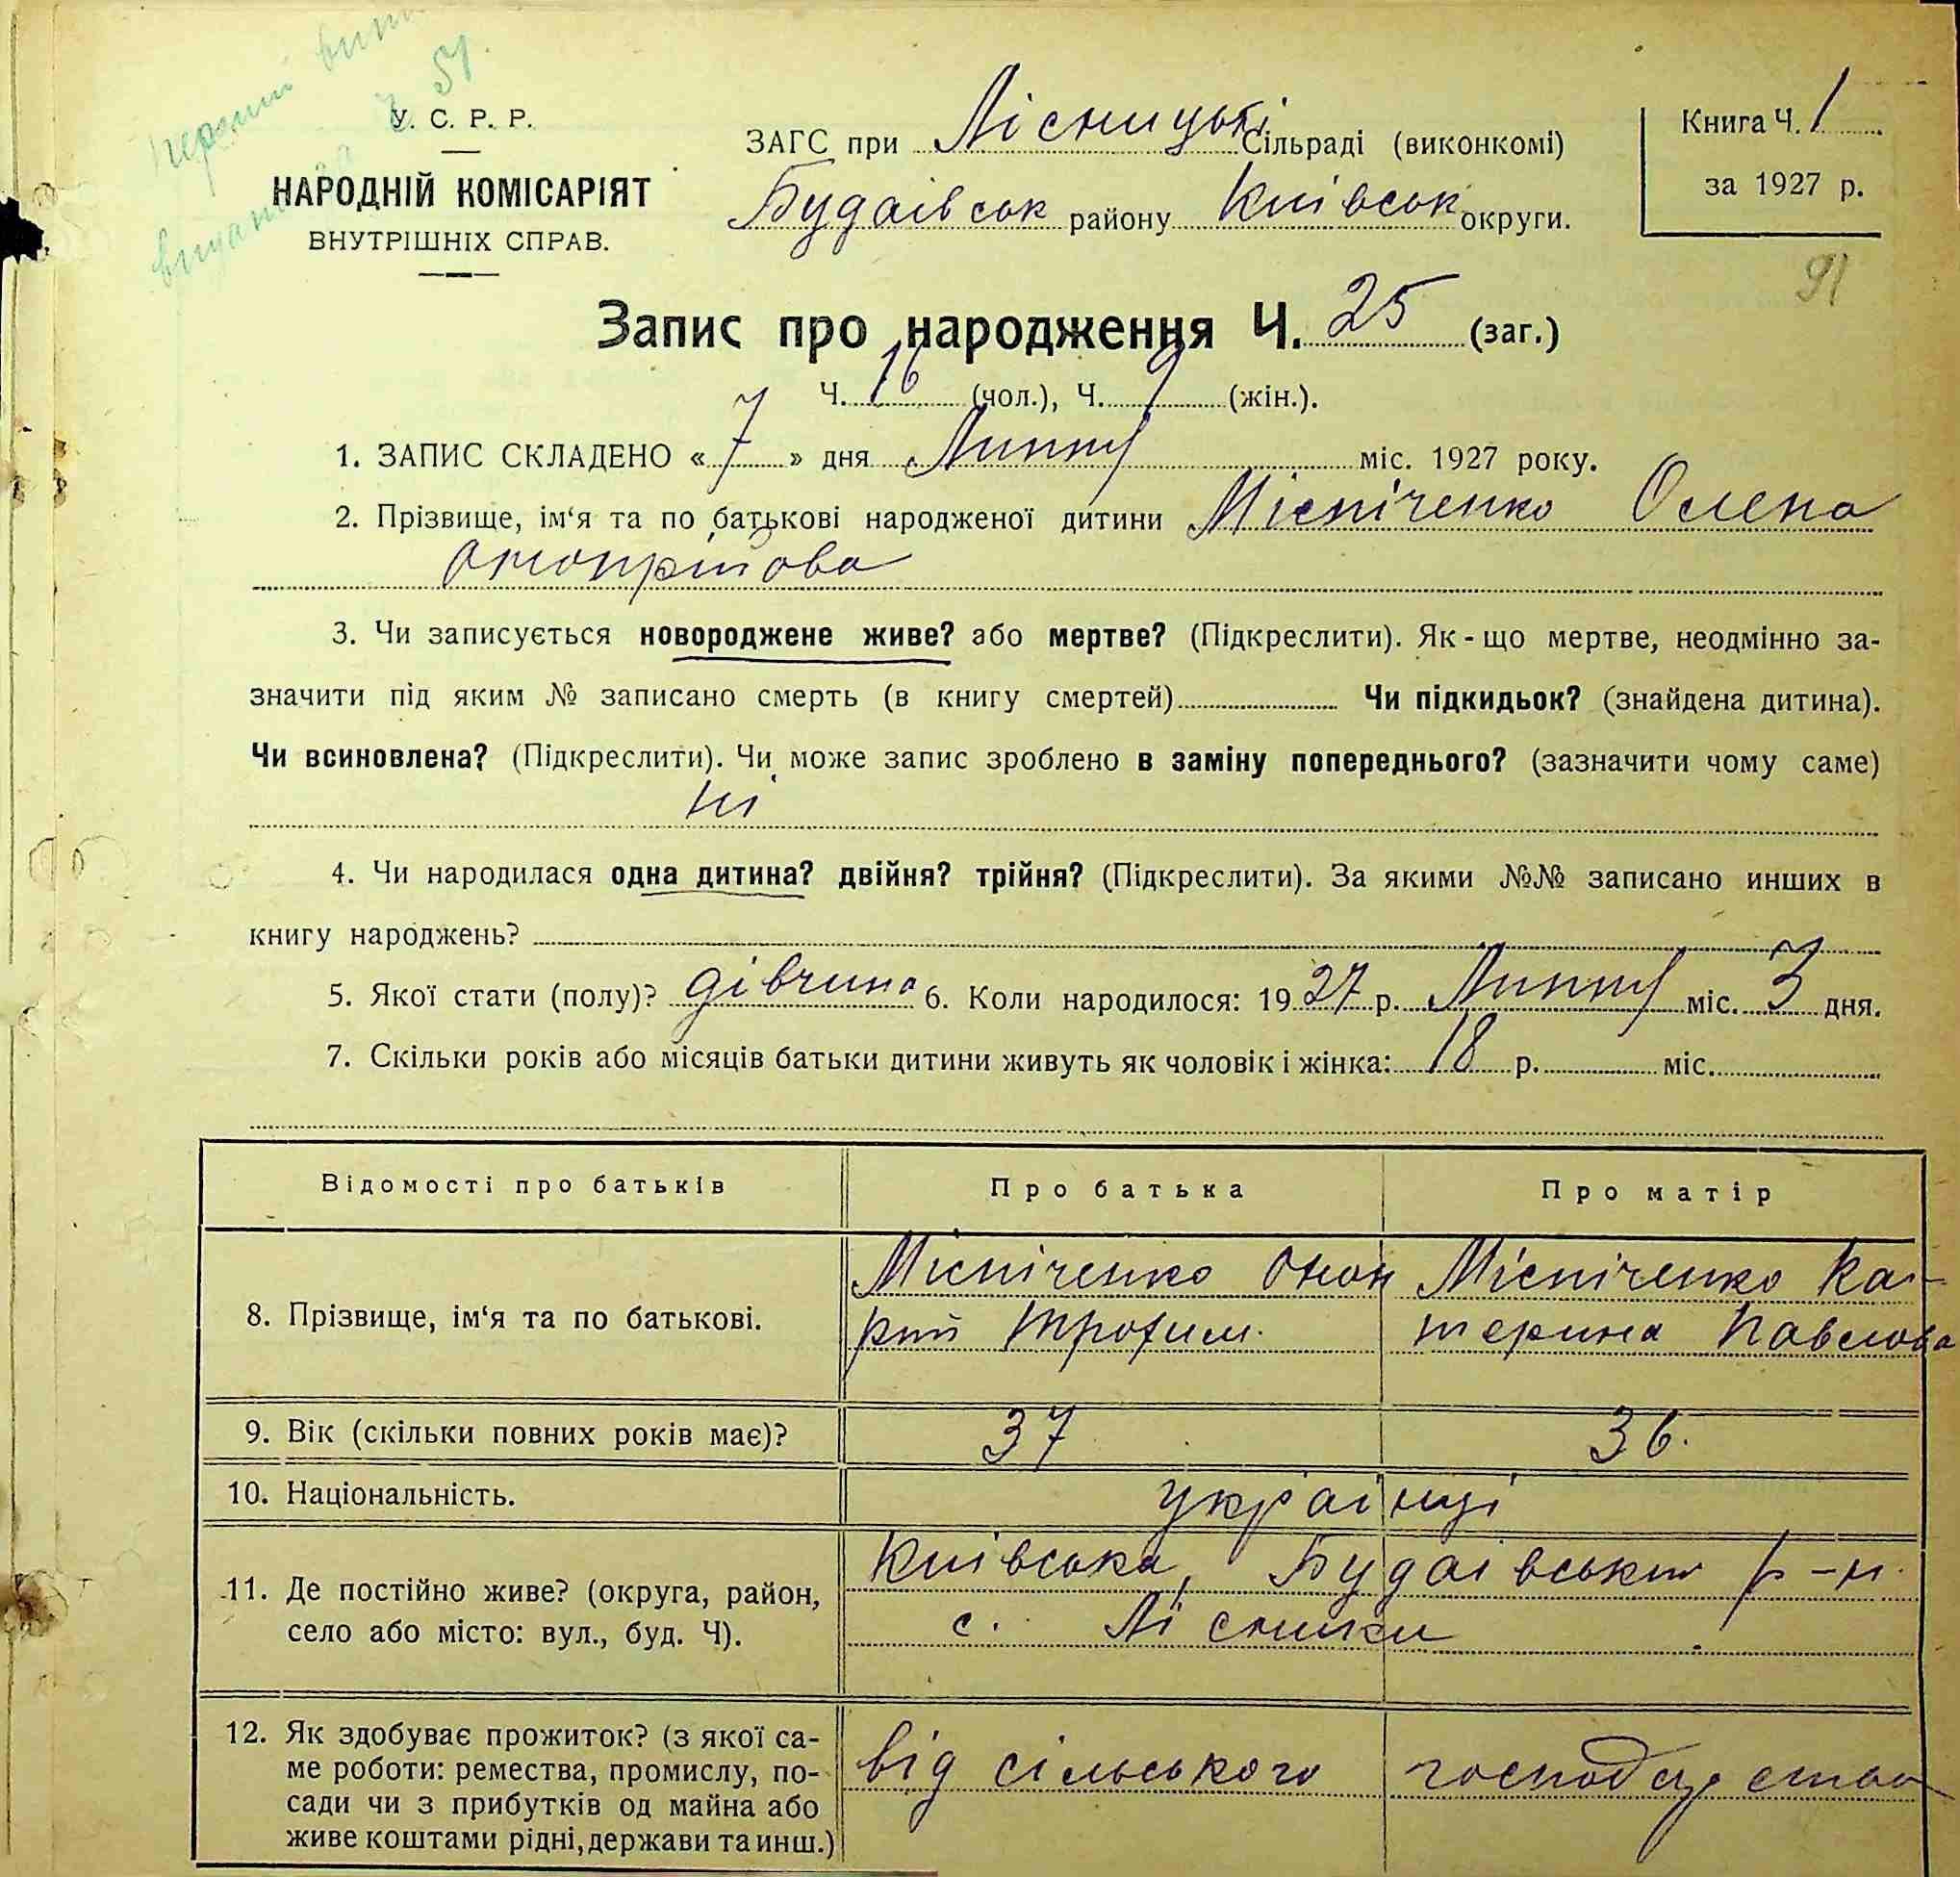 перший
видана 51
У. С. Р. Р.
НАРОДНІЙ КОМІСАРІЯТ
ВНУТРІШНІХ СПРАВ.
ЗАГС при Лісницькі Сільраді (виконкомі)
Будаівськ району Київськ округи.
Книга Ч. 1
за 1927 р.
91
Запис про народження Ч. 25 (заг.)
Ч. 16 (чол.), Ч. 9 (жін.).
1. ЗАПИС СКЛАДЕНО « 7 » дня Липня міс. 1927 року.
2. Прізвище, ім‘я та по батькові народженої дитини Місніченко Олена
Онопрійова
3. Чи записується новороджене живе? або мертве? (Підкреслити). Як-що мертве, неодмінно за-
значити під яким № записано смерть (в книгу смертей) Чи підкидьок? (знайдена дитина).
Чи всиновлена? (Підкреслити). Чи може запис зроблено в заміну попереднього? (зазначити чому саме)
ні
4. Чи народилася одна дитина? двійня? трійня? (Підкреслити). За якими №№ записано инших в
книгу народжень?
5. Якої стати (полу)? дівчина 6. Коли народилося: 1927 р. Липня міс. 3 дня.
7. Скільки років або місяців батьки дитини живуть як чоловік і жінка: 18 р. міс.
Відомості про батьків Про батька Про матір
8. Прізвище, ім‘я та по батькові.
Місніченко Оноп
рій Трофим.
Місніченко Ка-
терина Павлова
9. Вік (скільки повних років має)? 37 36.
10. Національність. українці
11. Де постійно живе? (округа, район,
село або місто: вул., буд. Ч).
Київська, Будаівський р-н.
с. Лісники
12. Як здобуває прожиток? (з якої са-
ме роботи: ремества, промислу, по-
сади чи з прибутків од майна або
живе коштами рідні, держави та инш.)
від сільського господарства